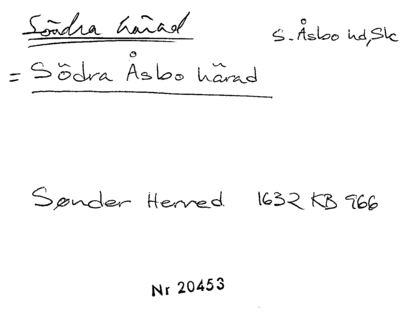 Södra härad
S. Åsbo hd, Sk
= Södra Åsbo härad
Sønder Herred 1632 KB 966
Nr 20453